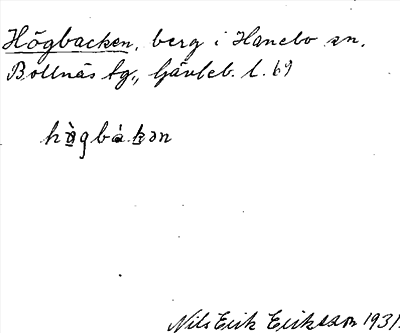 Högbacken, berg i Hanebo sn.
Bollnäs tg., Gävleb. l. 69
hö̀gbákən
Nils Erik Eriksson 1931.